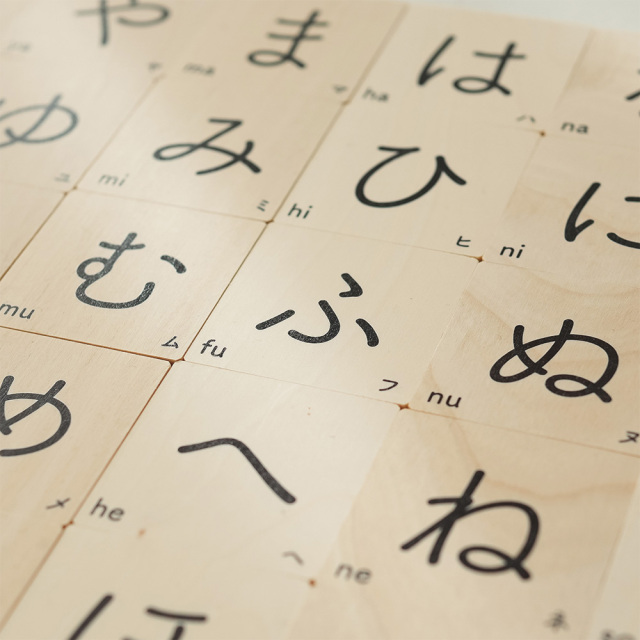 や
ま
ma
マ
は
ha
ハ
na
ゆ
ユ
み
mi
ミ
ひ
hi
ヒ
に
ni
む
mu
ム
ふ
fu
フ
ぬ
nu
ヌ
め
メ
へ
he
ヘ
ね
ne
ネ
ほ